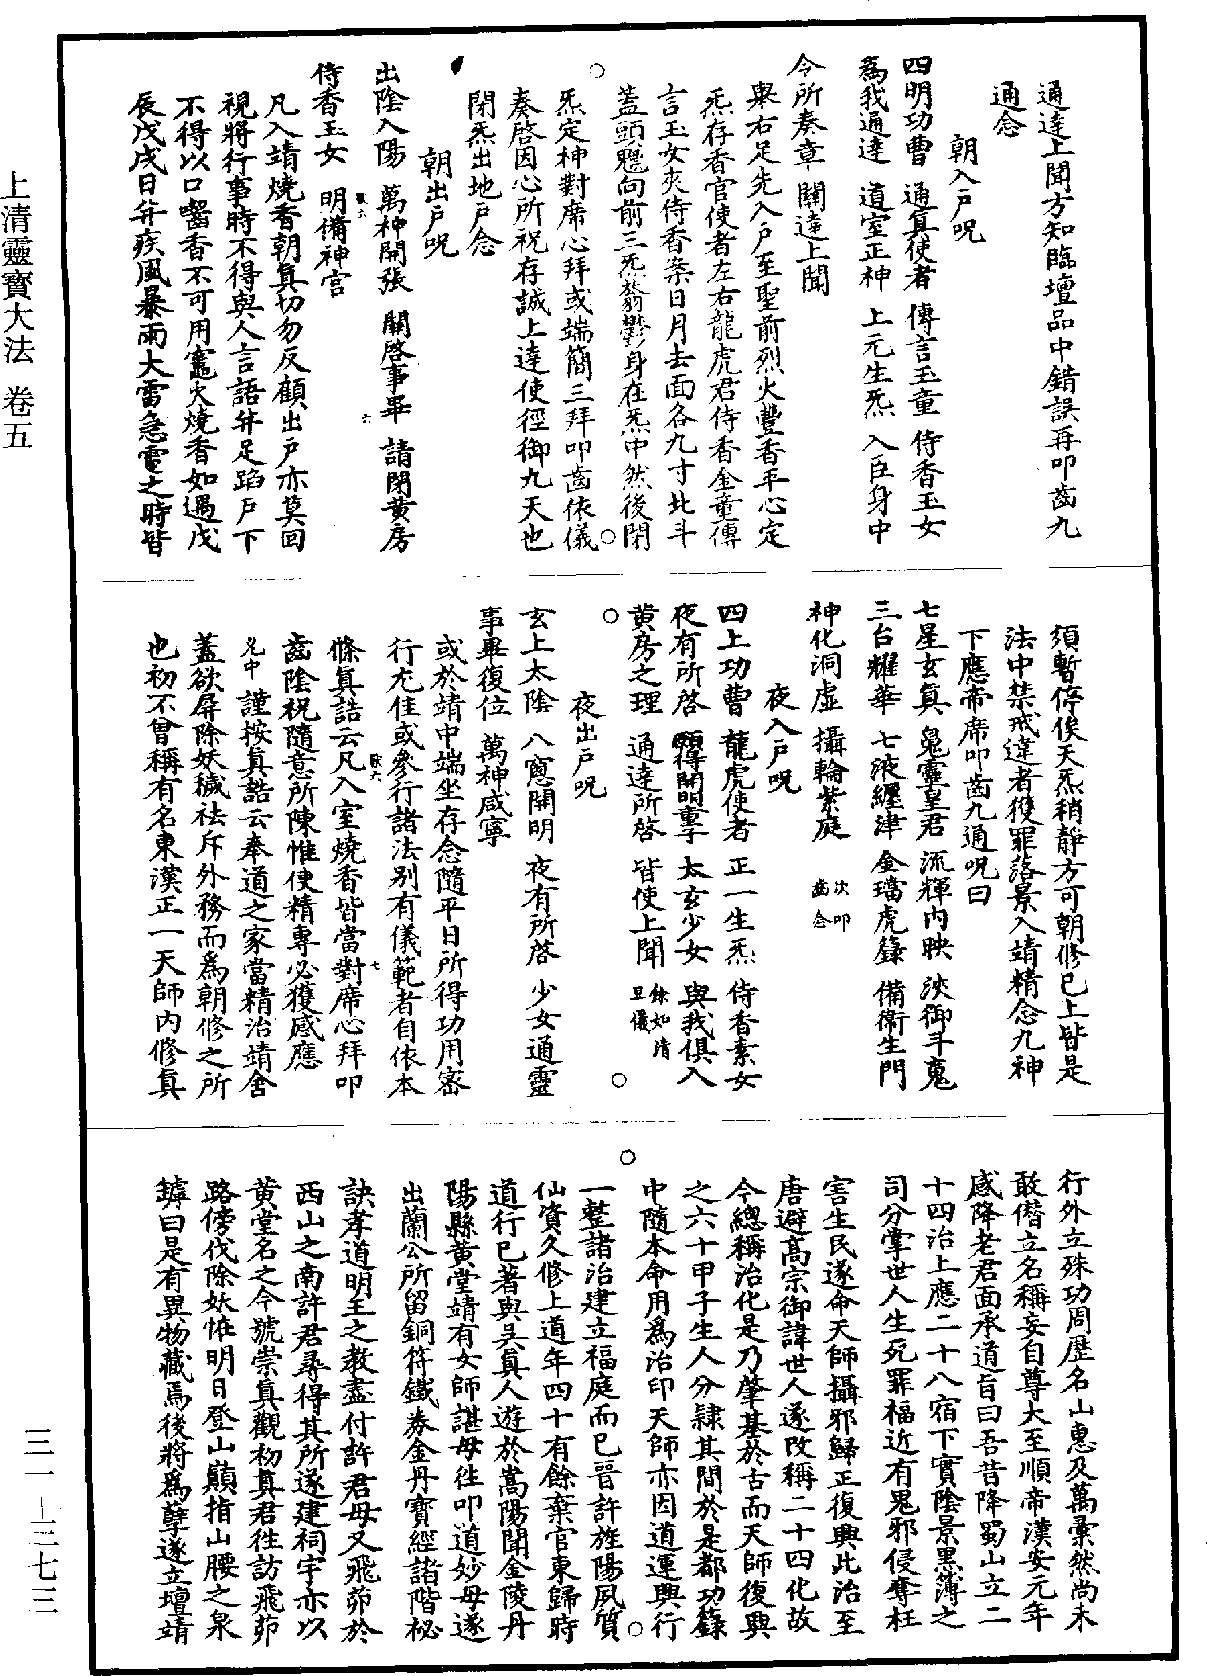 上清靈寶大法 卷五
三一-三七三
通達上聞方知臨壇品中錯誤再叩齒九
通念
朝入戶呪
四明功曹 通真使者 傳言玉童 侍香玉女
為我通達 道室正神 上元生炁 入臣身中
令所奏章 關達上聞
舉右足先入戶至聖前烈火豐香平心定
炁存香官使者左右龍虎君侍香金童傳
言玉女夾侍香案日月去面各九寸北斗
蓋頭魒向前三炁蓊鬱身在炁中然後閉
炁定神對席心拜或端簡三拜叩齒依儀
奏啓因心所祝存誠上達使徑御九天也
閉炁出地戶念
朝出戶呪
出陰入陽 萬神開張 關啓事畢 請閉黃房
侍香玉女 明備神宮
凡入靖燒香朝真切勿反顧出戶亦莫回
視將行事時不得與人言語并足蹈戶下
不得以口嚙香不可用竈火燒香如遇戊
辰戊戌日并疾風暴雨大雷急電之時皆
須暫停俟天炁稍靜方可朝修已上皆是
法中禁戒違者獲罪落景入靖精念九神
下應帝席叩齒九通呪曰
七星玄真 鬼靈皇君 流輝內映 浹御斗䰟
三台耀華 七液纏津 金璫虎籙 備衛生門
神化洞虛 攝輪紫庭 次叩齒念
夜入戶呪
四上功曹 龍虎使者 正一生炁 侍香素女
夜有所啓 願得開明童子 太玄少女 與我俱入
黃房之理 通達所啓 皆使上聞 餘如清旦儀
夜出戶呪
玄上太陰 八窻開明 夜有所啓 少女通靈
事畢復位 萬神咸寧
或於靖中端坐存念隨平日所得功用密
行尤佳或參行諸法別有儀範者自依本
條真誥云凡入室燒香皆當對席心拜叩
齒陰祝隨意所陳惟使精專必獲感應
謹按真誥云奉道之家當精治靖舍
蓋欲屏除妖穢祛斥外務而為朝修之所
也初不曾稱有名東漢正一天師內修真
行外立殊功周歷名山惠及萬彙然尚未
敢僭立名稱妄自尊大至順帝漢安元年
感降老君面承道旨曰吾昔降蜀山立二
十四治上應二十八宿下實陰景黑簿之
司分掌世人生死罪福近有鬼邪侵奪枉
害生民遂命天師攝邪歸正復興此治至
唐避高宗御諱世人遂改稱二十四化故
今總稱治化是乃肇基於古而天師復興
之六十甲子生人分隷其間於是都功籙
中隨本命用為治印天師亦因道運興行
一整諸治建立福庭而已晉許旌陽夙質
仙資久修上道年四十有餘棄官東歸時
道行已著與吳真人遊於嵩陽聞金陵丹
陽縣黃堂靖有女師諶母往叩道妙母遂
出蘭公所留銅符鐵券金丹寶經諸階祕
訣孝道明王之教盡付許君母又飛茆於
西山之南許君尋得其所遂建祠宇亦以
黃堂名之今號崇真觀初真君往訪飛茆
路傍伐除妖怪明日登山巔指山腰之泉
罅曰是有異物藏焉後將為孽遂立壇靖